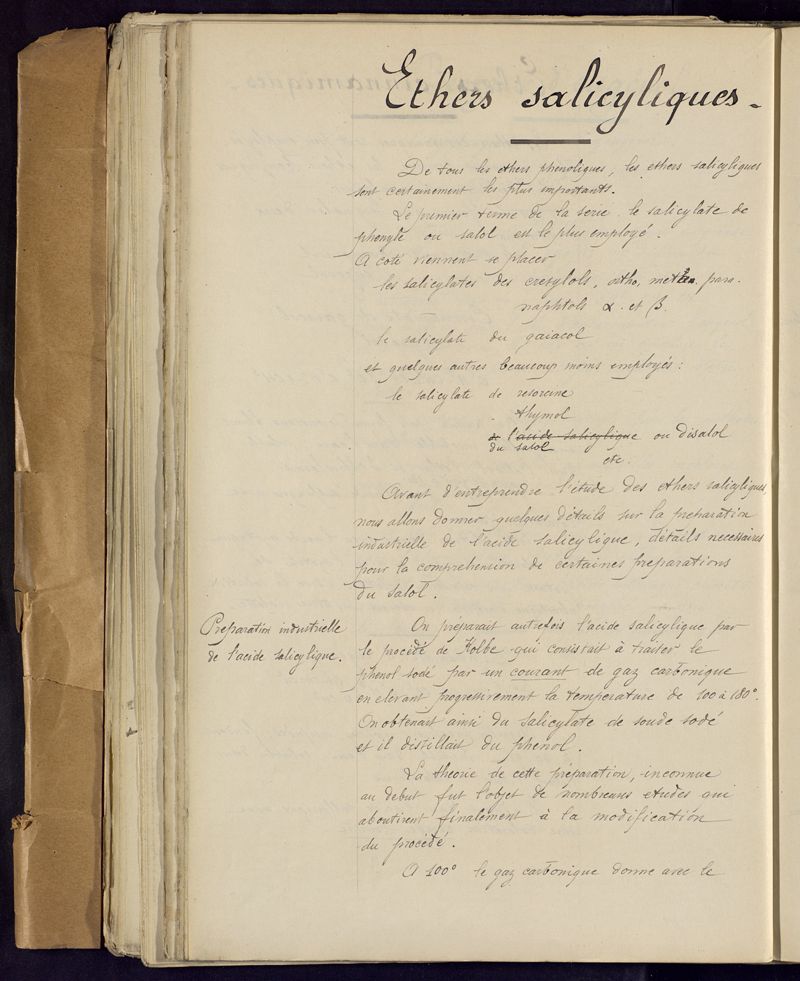 Ethers salicyliques -
De tous les ethers phenoliques, les ethers salicyliques
sont certainement les plus importants.
Le premier terme de la serie. le salicylate de
phenyle ou salol est le plus employé.
A coté viennent se placer
les salicylates des cresylols, ortho, meta, para.
naphtols α et β.
le salicylate du gaiacol
et quelques autres beaucoup moins employés:
le salicylate de resorcine
thymol
de l'acide salicylique ou disalol
du salol
etc.
Avant d'entreprendre l'étude des ethers salicyliques,
nous allons donner quelques détails sur la preparation
industrielle de l'acide salicylique, détails necessaires
pour la comprehension de certaines preparations
du salol.
Preparation industrielle
de l'acide salicylique.
On préparait autrefois l'acide salicylique par
le procédé de Kolbe qui consistait à traiter le
phenol sodé par un courant de gaz carbonique
en elevant progressivement la temperature de 100 à 180°.
On obtenait ainsi du salicylate de soude sodé
et il distillait du phenol.
La theorie de cette préparation, inconnue
au debut fut l'objet de nombreuses etudes qui
aboutirent finalement à la modification
du procédé.
A 100° le gaz carbonique donne avec le